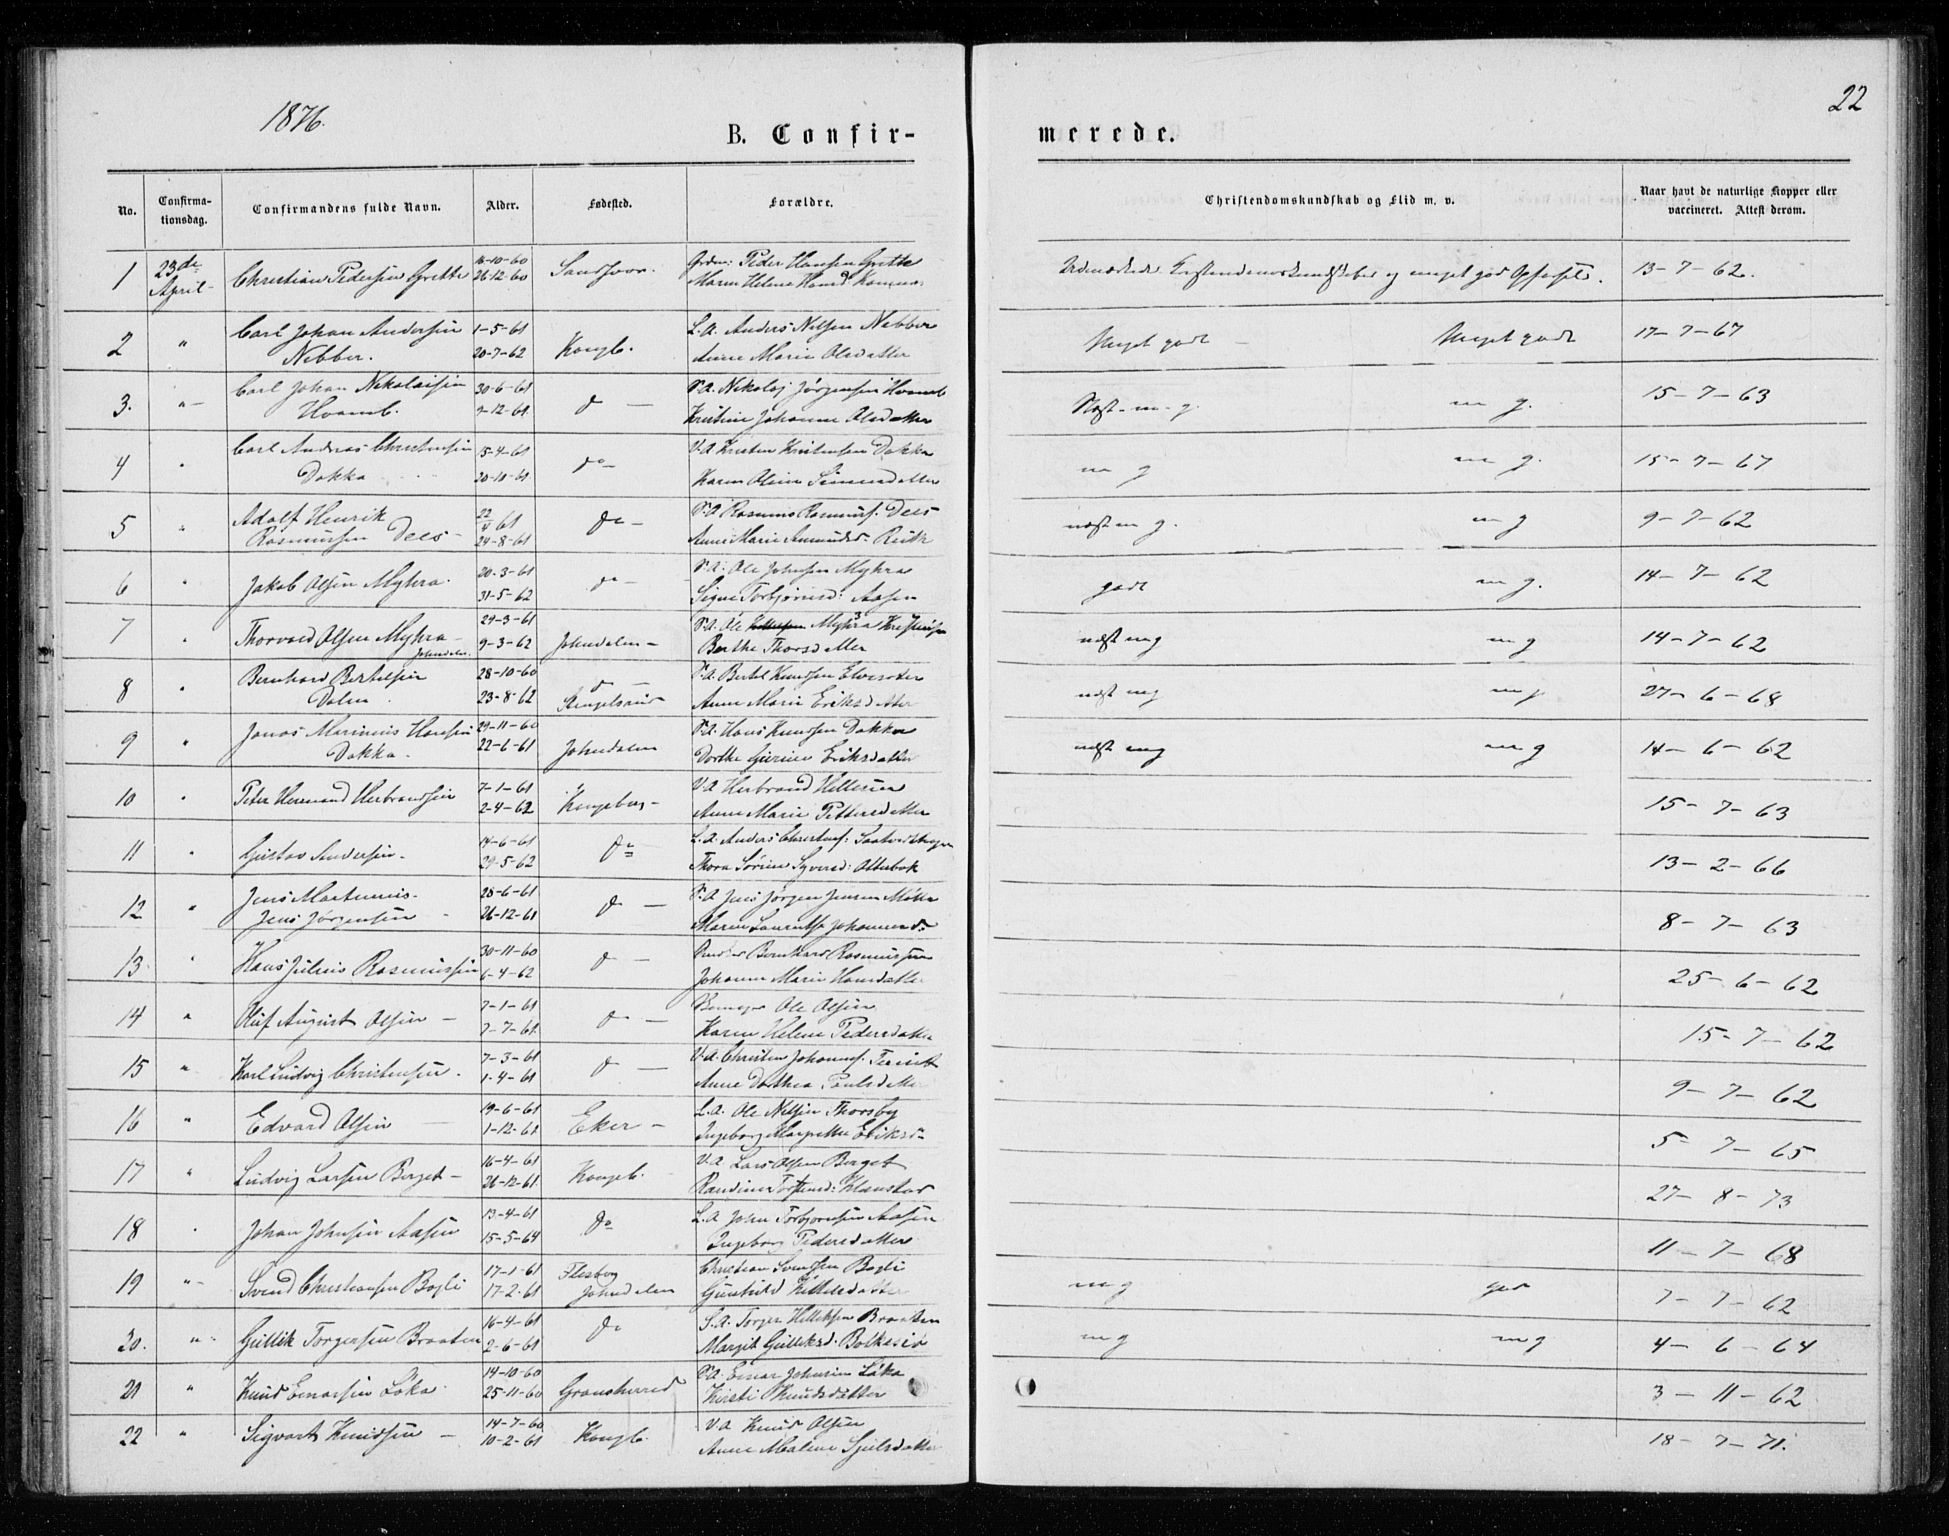 1876.
22
B. Confir-
merede.
No.
Confirma-
tionsdag.
Confirmandens fulde Navn.
Alder.
Fødested.
Forældre.
Christendomskundskab og Flid m. v.
Naar havt de naturlige Kopper eller
vaccineret. Attest derom.
1 23de April Christian Pedersen Grette 16-10-60 26-12-60 Peder Hansen Grette
Maren Helene 13-7-62.
2 " Carl Johan Andersen Nebber. 1-5-61 20-7-62 Kongb. L.A. Anders Nilsen Nebber
Anne Marie Olsdatter Meget godt Meget godt 17-7-67
3. " Carl Johan Nikolaisen Hvamb. 30-6-61 9-12-61 d - Nikolaj Jørgensen Hvamb
Kristine Johanne Olsdatter Næst m. g. m g. 15-7-63
4 " Carl Andreas Christensen Dokka 15-4-61 20-10-61 do - V.A Kristen Kristensen Dokka
Karen Oline m g m g. 15-7-67
5 " Adolf Henrik Rasmussen Dees - 22/4 61 24-8-61 do - Rasmus Rasmuss. Dees
Anne Marie næst m g. m g 9-7-62
6 " Jakob Olsen Myhra. 20-3-61 31-5-62 do - Ole Johnsen Myhra
Signe Torbjørnsd: Aasen godt m g. 14-7-62
7 " Thorvald Olsen Myhra - Johndalen. 24-3-61 9-3-62 Johndalen - Ole Myhra
Berthe Thorsdatter næst m g m g 14-7-62
8 " Bernhard Bertelsen Dalen. 28-10-60 23-8-62 d - Bertel Knudsen
Anne Marie Eriksdatter næst m g m g. 27-6-68
9 " Jonas Marinius Hansen Dokka. 29-11-60 22-6-61 Johndalen Hans Knudsen Dokka
Dorthe Eriksdatter næst m g m g 14-6-62
10 " Peter Hermand Herbrandsen 7-1-61 2-4-62 Kongsberg - V.A Herbrand
Anne Marie Pettersdatter 15-7-63
11 " Gustav Andersen. 14-6-61 29-5-62 do L.A. Anders Christens:
Thora Sørine Syversd: Atterbok 13-2-66
12 " Jens Martinius Jens Jørgensen - 28-6-61 26-12-61 d - Jens Jørgen Jensen
Maren 8-7-63
13 " Hans Julius Rasmussen 30-11-60 6-4-62 d - Bernhard Rasmussen
Johanne Marie Hansdatter 25-6-62
14 " Oluf August Olsen - 7-1-61 7-7-61. do - Ole Olsen
Karen Helene Pedersdatter 15-7-62
15 " Karl Ludvig Christensen. 7-3-61 1-4-61 d - V.A. Christen
Anne Dorthea Paulsdatter 9-7-62
16 " Edvard Olsen 19-6-61 1-12-61 Eker - L.A. Ole Nilsen Thorsby
Ingeborg Margrethe Eriksd- 5-7-65
17 " Ludvig Larsen Berget - 16-4-61 26-12-61. Kongb. V.A. Lars Olsen Berget
27-8-73
18 " Johan Johnsen Aasen 13-4-61 15-5-64 do L.A John Torbjørnsen Aasen
Ingeborg Pedersdatter 11-7-68
19 " Svend Christiansen Bogli 17-1-61 17-2-61 Flesberg Johndalen Christian Svendsen Bogli
Gunhild Kittelsdatter m g god 7-7-62
20. " Gullik Torgersen Braaten 16-4-61 2-6-61 do Torger Helleksen Braaten
Margit Gulliksd. m g m g 4-6-64
21 " Knud Einarsen Løka. 14-10-60 25-11-60 Gransherred Einar Johnsen Løka
Kirsti Knudsdatter 3-11-62
22 " Sigvart Knudsen - 14-7-60 10-2-61 Kongb. V.A Knud Olsen
Anne Malene 18-7-71.